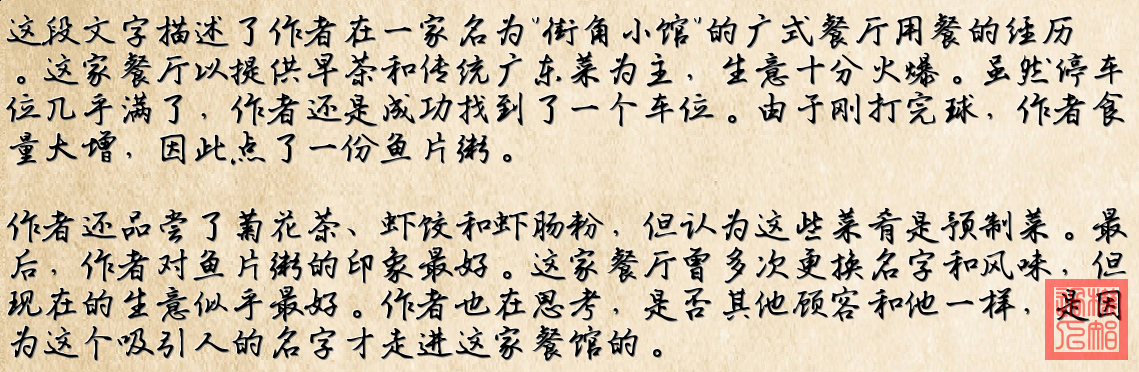 这段文字描述了作者在一家名为"街角小馆"的广式餐厅用餐的经历
。这家餐厅以提供早茶和传统广东菜为主，生意十分火爆。虽然停车
位几乎满了，作者还是成功找到了一个车位。由于刚打完球，作者食
量大增，因此点了一份鱼片粥。
作者还品尝了菊花茶、虾饺和虾肠粉，但认为这些菜肴是预制菜。最
后，作者对鱼片粥的印象最好。这家餐厅曾多次更换名字和风味，但
现在的生意似乎最好。作者也在思考，是否其他顾客和他一样，是因
为这个吸引人的名字才走进这家餐馆的。